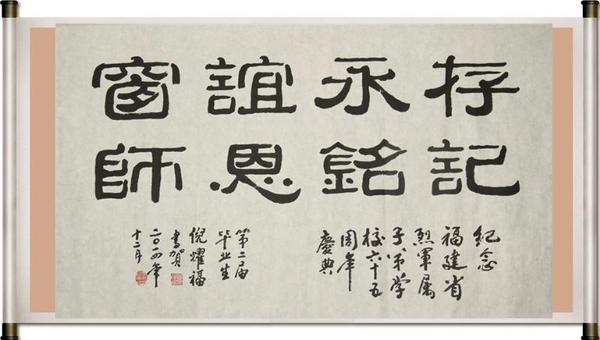 窗誼永存
師恩銘記
紀念
福建省
烈軍属
子弟学
校六十五
周年
慶典
第二届
毕业生
倪耀福
書贺
二〇一四年
十二月